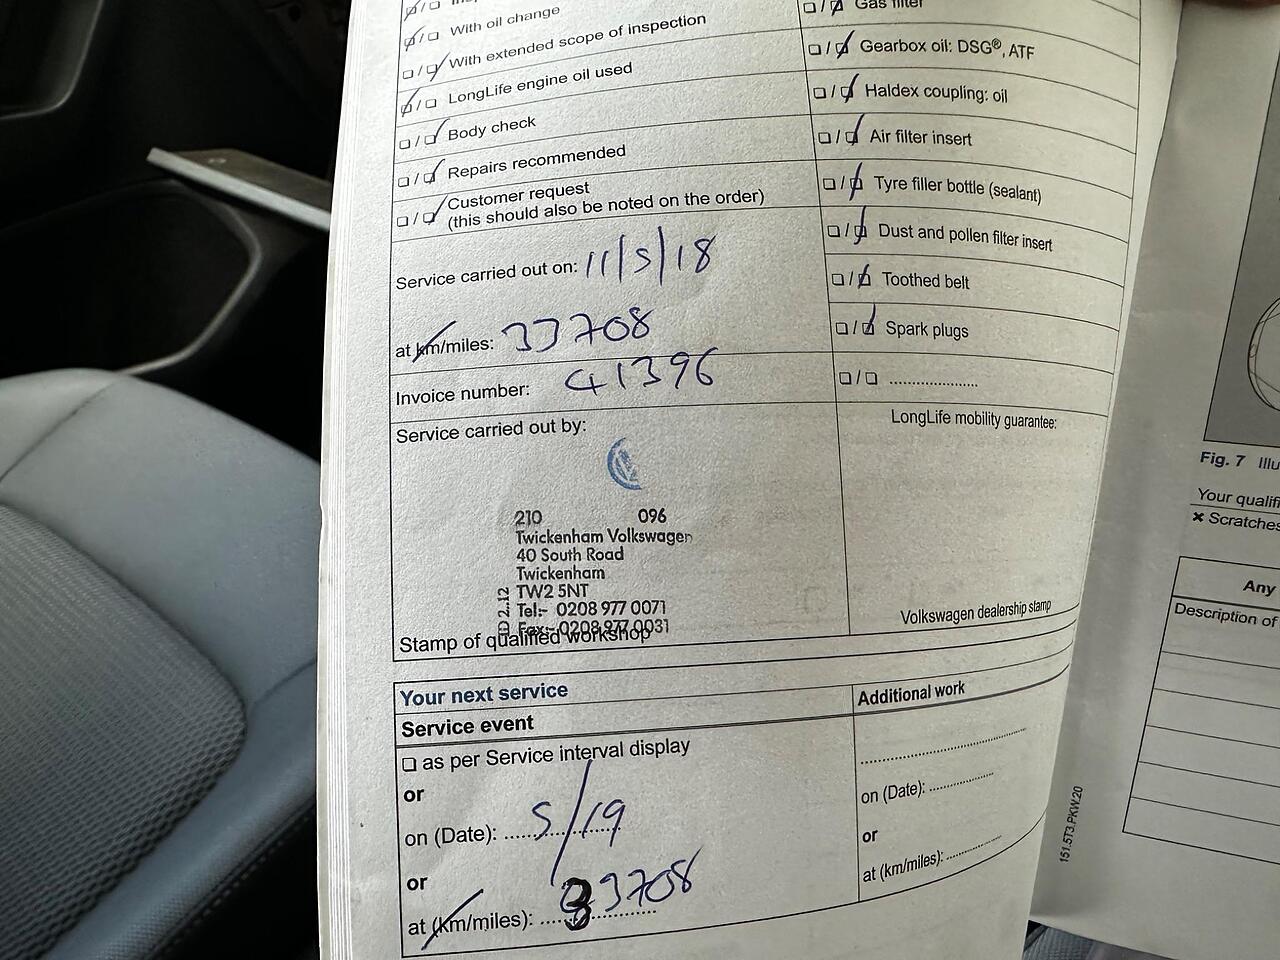 With oil change
With extended scope of inspection
LongLife engine oil used
Body check
Repairs recommended
Customer request
(this should also be noted on the order)
Service carried out on: 11/5/18
at km/miles: 33708
Invoice number: 41396
Service carried out by:
210 096
Twickenham Volkswagen
40 South Road
Twickenham
TW2 5NT
Tel:- 0208 977 0071
Fax:- 0208 977 0031
Stamp of qualified workshop
Gas filter
Gearbox oil: DSG®, ATF
Haldex coupling: oil
Air filter insert
Tyre filler bottle (sealant)
Dust and pollen filter insert
Toothed belt
Spark plugs
LongLife mobility guarantee:
Volkswagen dealership stamp
Your next service
Service event
as per Service interval display
or
on (Date): 5/19
or
at (km/miles): 3708
Additional work
on (Date):
or
at (km/miles):
151.5T3.PKW.20
Fig. 7
Your
Scratches
Any
Description of